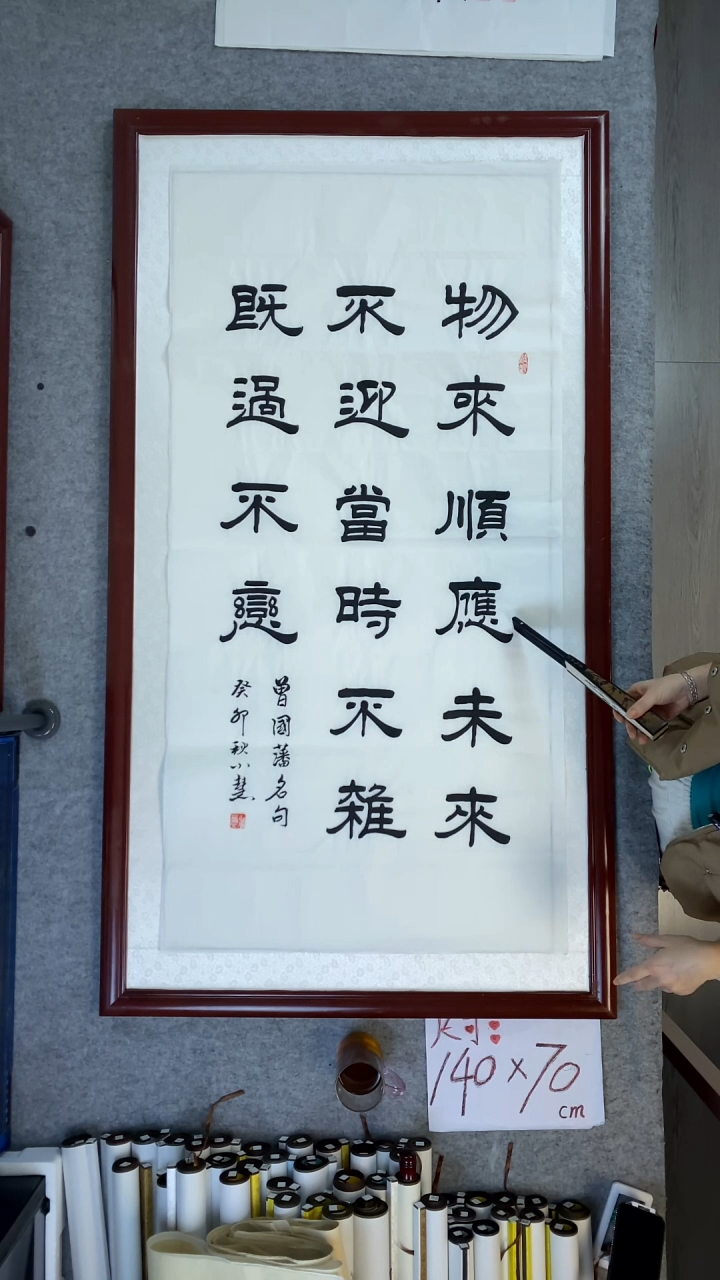 物來順應未來
不迎當時不雜
既過不戀
曾國藩名句
癸卯秋小慧
140×70
cm